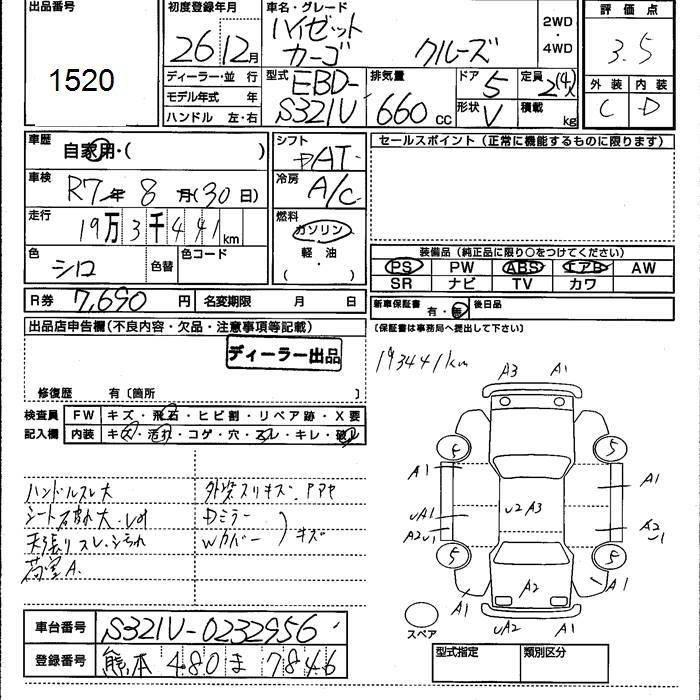 出品番号
1520
初度登録年月
26 12月
車名・グレード
ハイゼット
カーゴ クルーズ
2WD
・
4WD
評価点
3.5
外装 内装
C D
ディーラー・並 行
モデル年式 年
ハンドル 左・右
型式
EBD-
S321V
排気量
660 cc
ドア
5
形状
V
定員
2(4)
積載
kg
車歴
自家用・( )
車検
R7年 8月(30日)
走行
19万3千441km
色
シロ
色替
色コード
シフト
AT
冷房
A/C
燃料
ガソリン
軽・油
( ・ )
セールスポイント(正常に機能するものに限ります)
装備品(純正品に限り○をつけてください)
PS PW ABS エアB AW
SR ナビ TV カワ
R券 7,690 円
名変期限 月 日
新車保証書 有・無
後日品
(保証書は事務局へ提出して下さい)
出品店申告欄(不良内容・欠品・注意事項等記載)
ディーラー出品
修復歴 有〔箇所 〕
検査員
記入欄
FW キズ・飛石・ヒビ割・リペア跡・X要
内装 キズ・汚れ・コゲ・穴・スレ・キレ・破レ
193441km
A3 A1
5 5
A1 A1
U2 A3
UA1 A2
A2U1 U1
5 5
A2
A1 A1
UA2 A1
スペア
ハンドルスレ大
外装スリキズ・アマヤ
シート破れ大・
Dミラー
Wカバー
キズ
天張りスレ・汚れ
荷室A.
車台番号 S321V-0232956
登録番号 熊本 480 ま 7846
型式指定 類別区分